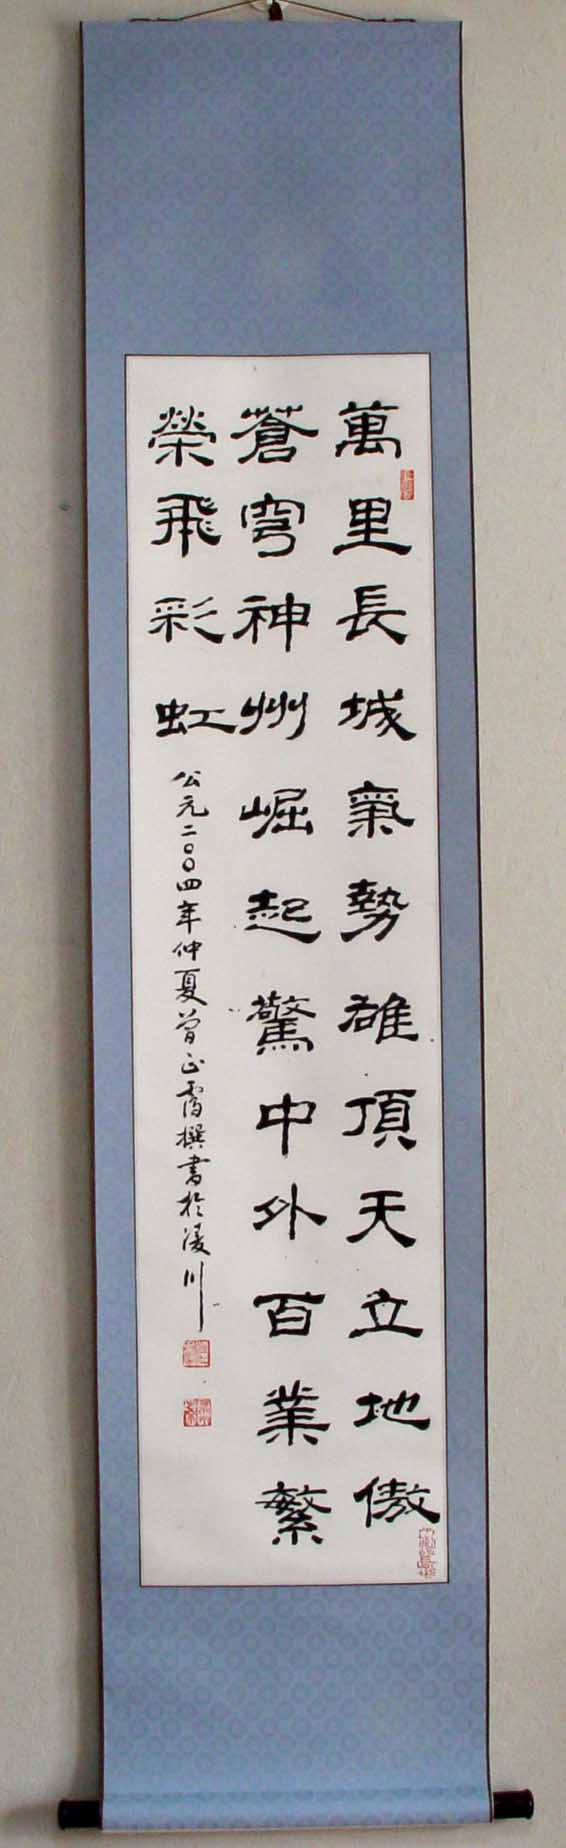 萬里長城氣勢雄頂天立地傲
蒼穹神州崛起驚中外百業繁
榮飛彩虹
公元二〇〇四年仲夏曾正霱撰書於凌川